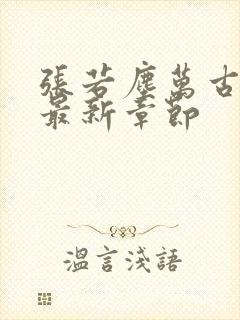 張若塵萬古
最新章節
溫言淺語